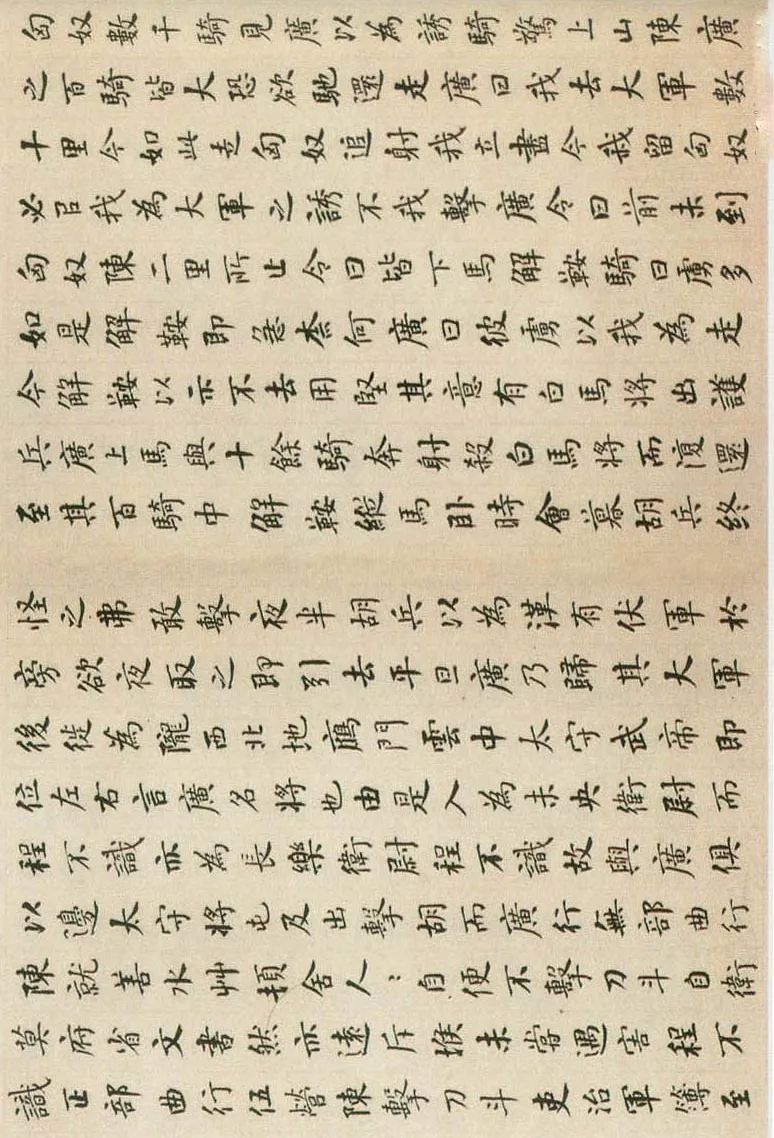 匈奴數千騎見廣以為誘騎驚上山陳廣
之百騎皆大恐欲馳還走廣曰我去大軍數
十里今如此走匈奴追射我立盡今我留匈奴
必㠯我為大軍之誘不我擊廣令曰前未到
匈奴陳二里所止令曰皆下馬解鞍騎曰虜多
如是解鞍即急柰何廣曰彼虜以我為走
今解鞍以示不去用堅其意有白馬將出護
兵廣上馬與十餘騎奔射殺白馬將而復還
至其百騎中解鞍縱馬臥時會暮胡兵終
怪之弗敢擊夜半胡兵以為漢有伏軍於
旁欲夜取之即引去平旦廣乃歸其大軍
後徙為隴西北地鴈門雲中太守武帝即
位左右言廣名將也由是入為未央衛尉而
程不識亦為長樂衛尉程不識故與廣俱
以邊太守將屯及出擊胡而廣行無部曲行
陳就善水艸頓舍人〻自便不擊刀斗自衛
莫府省文書然亦遠斥堠未嘗遇害程不
識正部曲行伍營陳擊刀斗吏治軍簿至